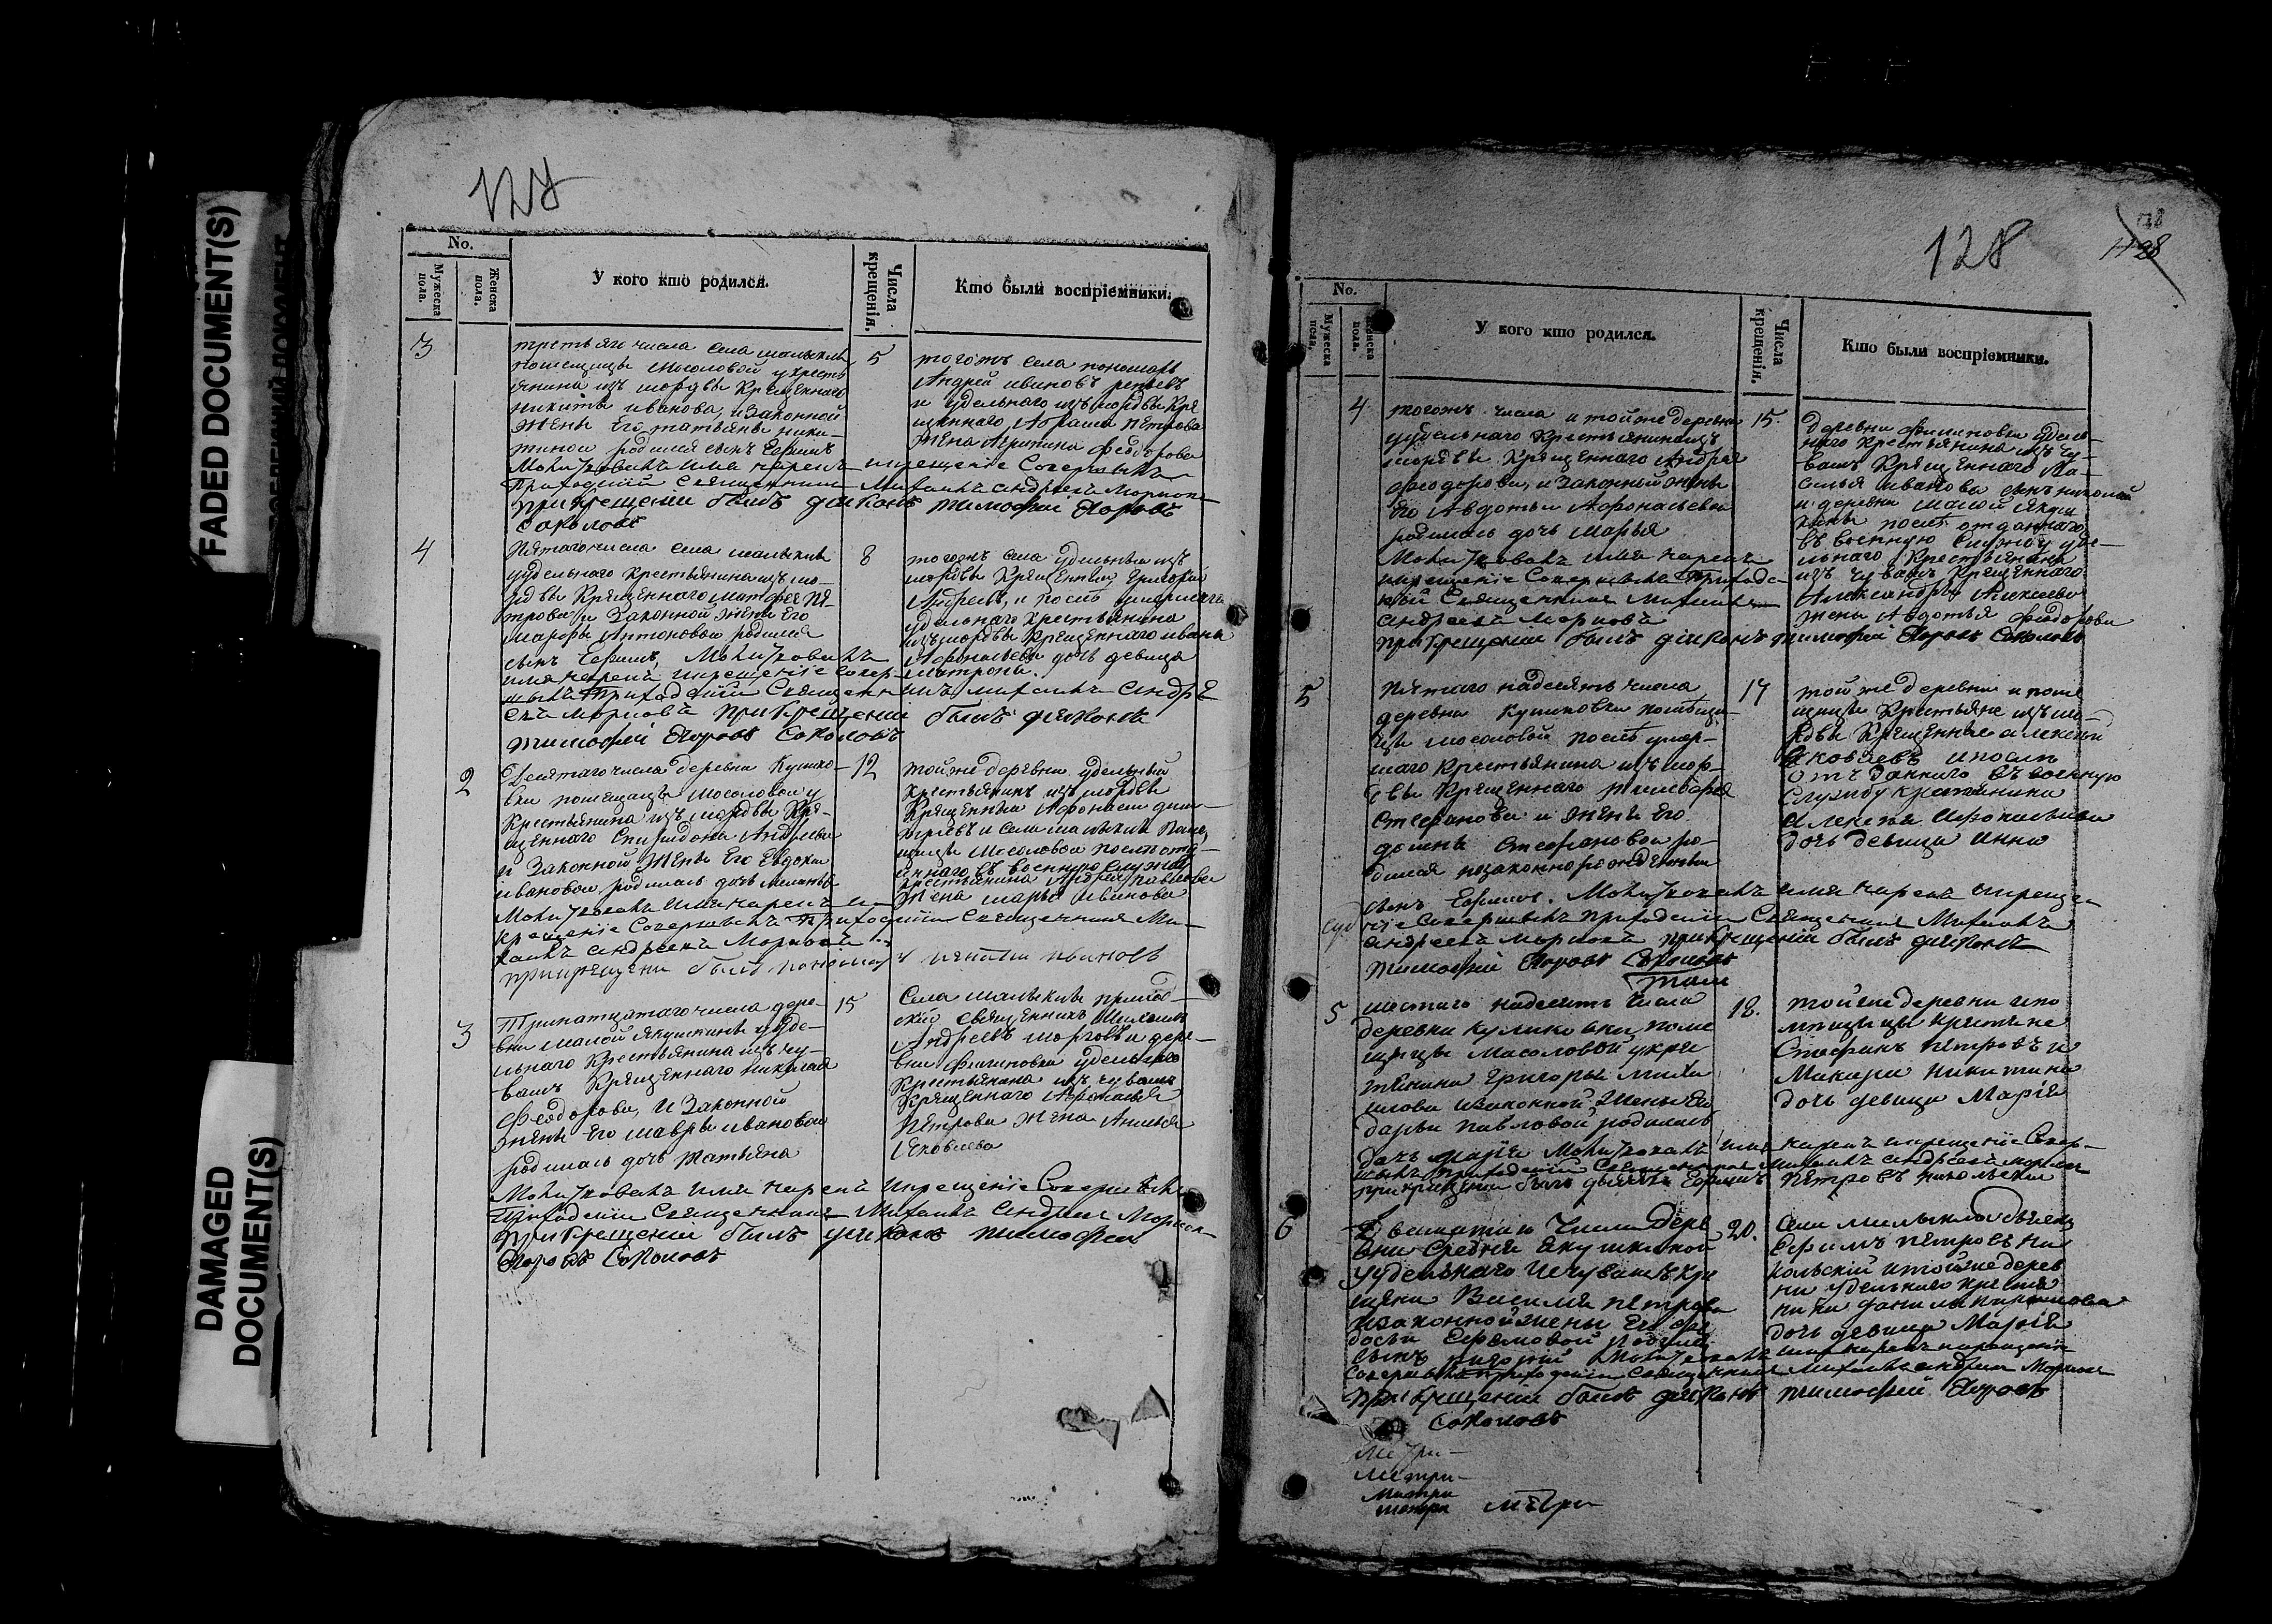 FADED DOCUMENT(S)
DAMAGED
DOCUMENT(S)
127
No.
Мужеска
пола.
Женска
пола.
У кого кто родился.
Числа
крещенія.
Кто были воспріемники.
3
третьяго числа села малыклы
помещицы Мосоловой у кресть
янина изъ мордвы крещеннаго
никиты иванова, и законной
жены Его татьяны ники-
тиной родился сынъ Ефимъ
Молитвовалъ имя нарекъ и крещеніе Совершилъ
Приходскій Священникъ Михаилъ Андреевъ Моржовъ
при крещеніи былъ диаконъ тимофей Егоровъ
Соколовъ
5
тогожъ села пономарь
Андрей ивановъ
и удельнаго изъ мордвы кре
щеннаго, Абрама петрова
жена Агрипина феодорова
4
Пятаго числа села малыклы
у удельнаго крестьянина изъ мо-
рдвы Крещеннаго матфея пе-
трова и Законной жены Его
марфы Антоновой родился
сынъ Ефимъ, Молитвовалъ
имя нарекъ и крещеніе совер-
шилъ Приходскій Священникъ михаилъ Андре
евъ Моржовъ при Крещеніи былъ диаконъ
тимофей Егоровъ Соколовъ
8
тогожъ села удельный изъ
мордвы Крещенный григорий
Андреевъ, и после умершаго
удельнаго крестьянина
изъ мордвы Крещеннаго ивана
Афонасьева дочь девица
матрона.
2
Десятаго числа деревни Кулико-
вки помещицы Мосоловой у
Крестьянина изъ мордвы Кре-
щеннаго Спиридона Андреева
и Законной Жены Его Евдокии
ивановой, родилась дочь
Молитвовалъ имя нарекъ и
крещеніе Совершилъ Приходскій Священникъ Ми-
хаилъ Андреевъ Моржовъ
при крещеніи былъ пономарь ивановъ
12
той же деревни удельный
крестьянинъ изъ мордвы
Крещенный Афонасей дми-
триевъ и села малыклы поме
щицы Мосоловой после отд-
аннаго въ военную службу
крестьянина Андрея павлова
жена марья иванова
3
Тринатцатаго числа дере-
вни малой якушкины у уде-
льнаго крестьянина изъ чу-
вашъ Крещеннаго николая
феодорова, и Законной
жены Его мавры ивановой
родилась дочь татьяна
Молитвовалъ имя нарекъ и крещеніе Совершилъ
Приходскій Священникъ Михаилъ Андреевъ Моржовъ
при Крещеніи былъ диаконъ тимофей
Егоровъ Соколовъ
15
Села малыклы приход-
ский священникъ Михаилъ
Андреевъ моржовъ и дере-
вни филиповки удельнаго
Крестьянина изъ чувашъ
Крещеннаго Афонасья
Петрова жена
Яковлева
128
No.
Мужеска
пола.
Женска
пола.
У кого кто родился.
Числа
крещенія.
Кто были воспріемники.
4
тогожъ числа и той же деревни
у удельнаго Крестьянина изъ
мордвы Крещеннаго Андрея
феодорова, и Законной жены
Его Авдотьи Афонасьевой
родилась дочь Марья
Молитвовалъ имя нарекъ
и крещеніе Совершилъ Приходс-
кій Священникъ Михаилъ
Андреевъ Моржовъ
при крещеніи былъ диаконъ тимофей Егоровъ Соколовъ
15.
деревни филиповки удель-
наго крестьянина изъ чу-
вашъ Крещеннаго Ва-
силья иванова сынъ николай
и деревни малой якуш
кины после отданнаго
въ военную Службу уде-
льнаго Крестьянина
изъ чувашъ Крещеннаго
Александра Алексеева
жена Авдотья феодорова
5
Пятаго надесять числа
деревни Куликовки помещи-
цы мосоловой после умер-
шаго крестьянина изъ мор-
двы Крещеннаго тимофея
Стефанова и жены Его
Стефановой ро-
дился незаконнорожденный
сынъ Ефимъ. Молитвовалъ имя нарекъ и креще-
ніе Совершилъ приходскій Священникъ Михаилъ
Андреевъ Моржовъ при крещеніи былъ диаконъ
тимофей Егоровъ Соколовъ
17
той же деревни и поме
щицы Крестьяне изъ мо-
рдвы Крещенные алексей
Яковлевъ и после
отъданнаго въ военную
Службу крестьянина
Алексея Афонасьева
дочь девица Анна
5
шестаго надесять числа
деревни куликовки поме
щицы Масоловой у кре
тьянина Григорья Михаи
лова и законной жены Его
Дарьи павловой родилась
дочь Марія Молитвовалъ имя нарекъ и крещеніе Совер-
шилъ приходскій Священникъ Михаилъ Андреевъ Моржовъ
при крещеніи былъ дьячекъ Ефимъ Петровъ никольскій
18.
той же деревни и по
мещицы крестьяне
Стефанъ петровъ и
Макара Никитина
дочь девица Марія
6
Двенатцатаго Числа Дере
вни Средней Якушкиной
у удельнаго изъ чувашъ кре
щена Василья петрова
и законной жены Его фео
досьи Ефремовой родился
сынъ Григорий Молитвовалъ имя нарекъ и крещеніе
Совершилъ приходскій Священникъ Михаилъ Андреевъ Моржовъ
при крещеніи былъ диаконъ тимофей Егоровъ
Соколовъ
20.
Села Малыклы дьячекъ
Ефимъ петровъ Ни
кольский и той же дерев
ни удельнаго крестья
нина данилы
дочь девица Марія
Метри-
Метри-
Метри
метри
метри